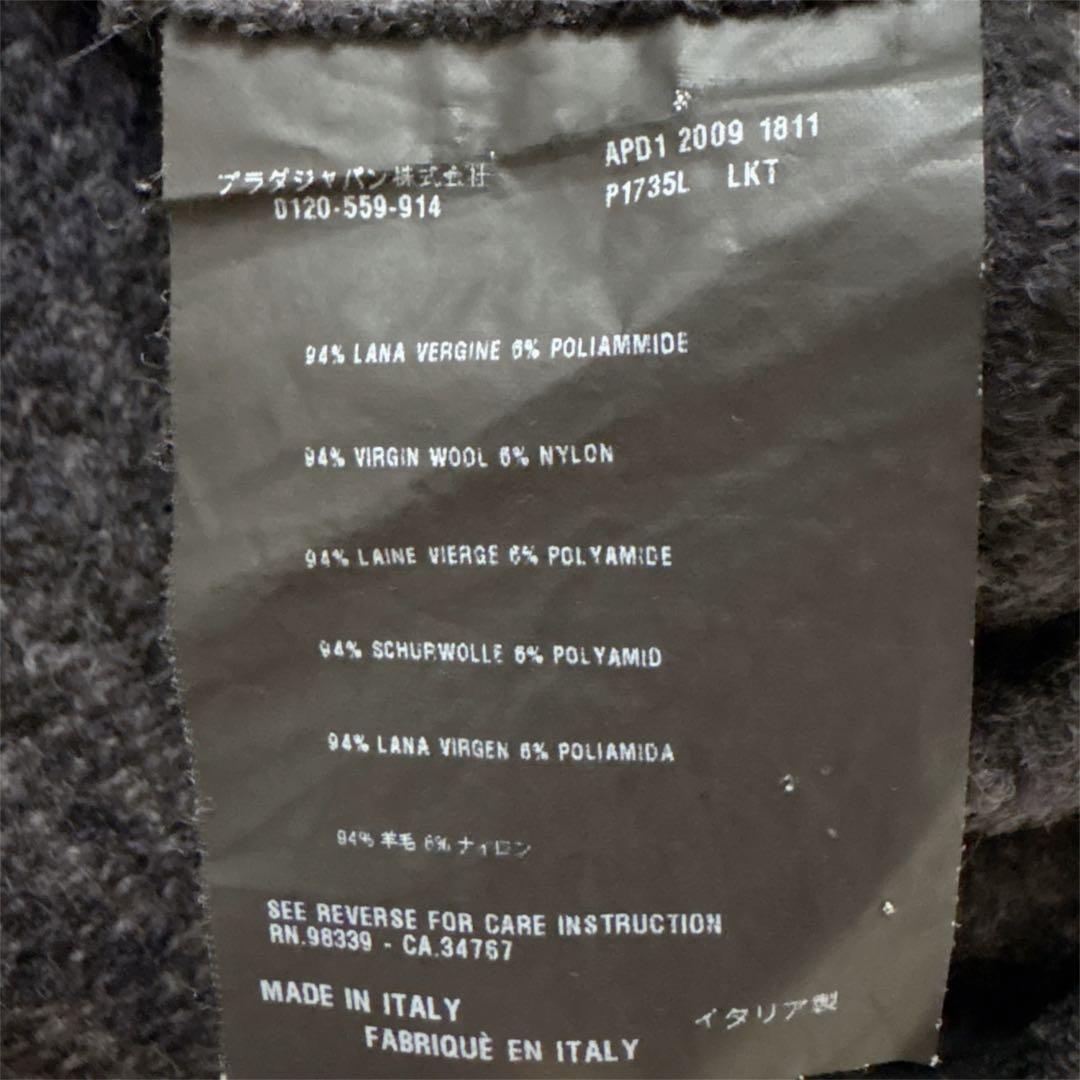 プラダジャパン株式会社
0120-559-914
APD1 2009 1811
P1735L LKT
94% LANA VERGINE 6% POLIAMMIDE
94% VIRGIN WOOL 6% NYLON
94% LAINE VIERGE 6% POLYAMIDE
94% SCHURWOLLE 6% POLYAMID
94% LANA VIRGEN 6% POLIAMIDA
94% 羊毛 6% ナイロン
SEE REVERSE FOR CARE INSTRUCTION
RN.98339 - CA.34767
MADE IN ITALY
FABRIQUÈ EN ITALY
イタリア製